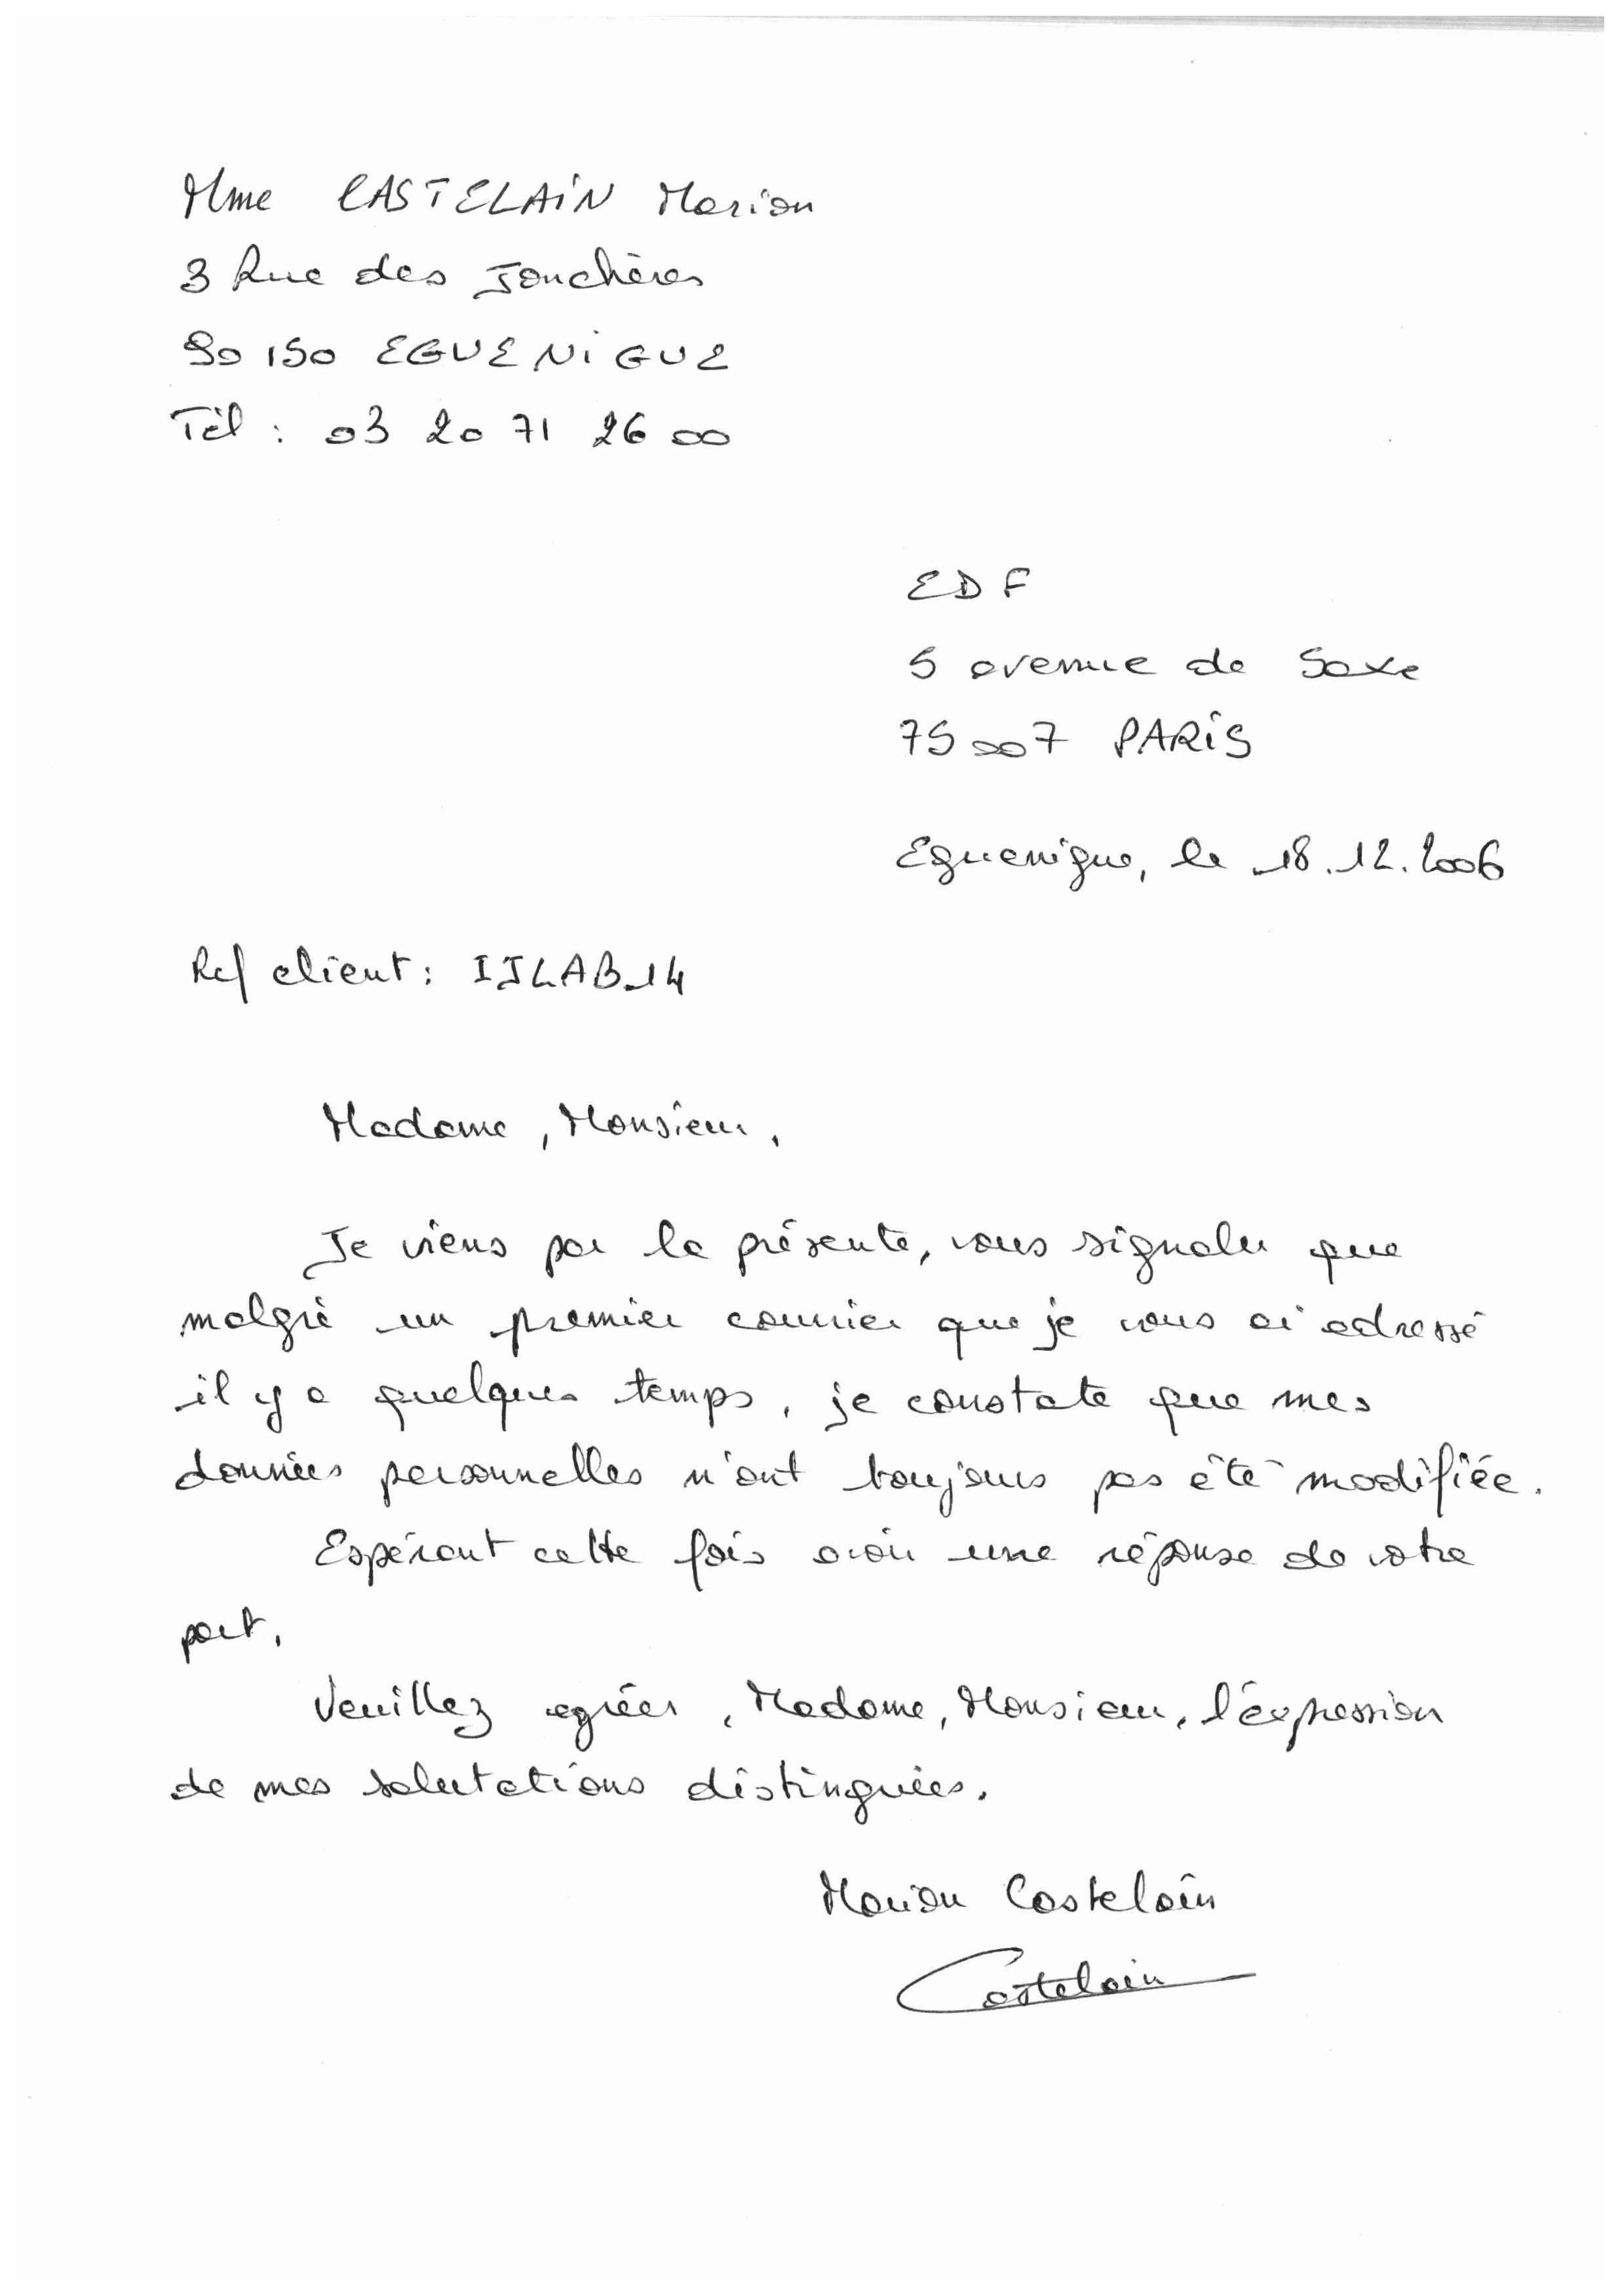 Mme CASTELAIN Marion
3 Rue des Jonchères
90150 EGUENIGUE
Tél : 03 20 71 26 00
EDF
5 avenue de Saxe
75007 PARIS
Eguenigue, le 18.12.2006
Ref client : IJLAB14
Madame, Monsieur,
Je viens par la présente, vous signaler que
malgré un premier courrier que je vous ai adressé
il y a quelques temps, je constate que mes
données personnelles n'ont toujours pas été modifiée.
Espérant cette fois avoir une réponse de votre
part,
Veuillez agréer, Madame, Monsieur, l'expression
de mes salutations distinguées.
Marion Castelain
Castelain